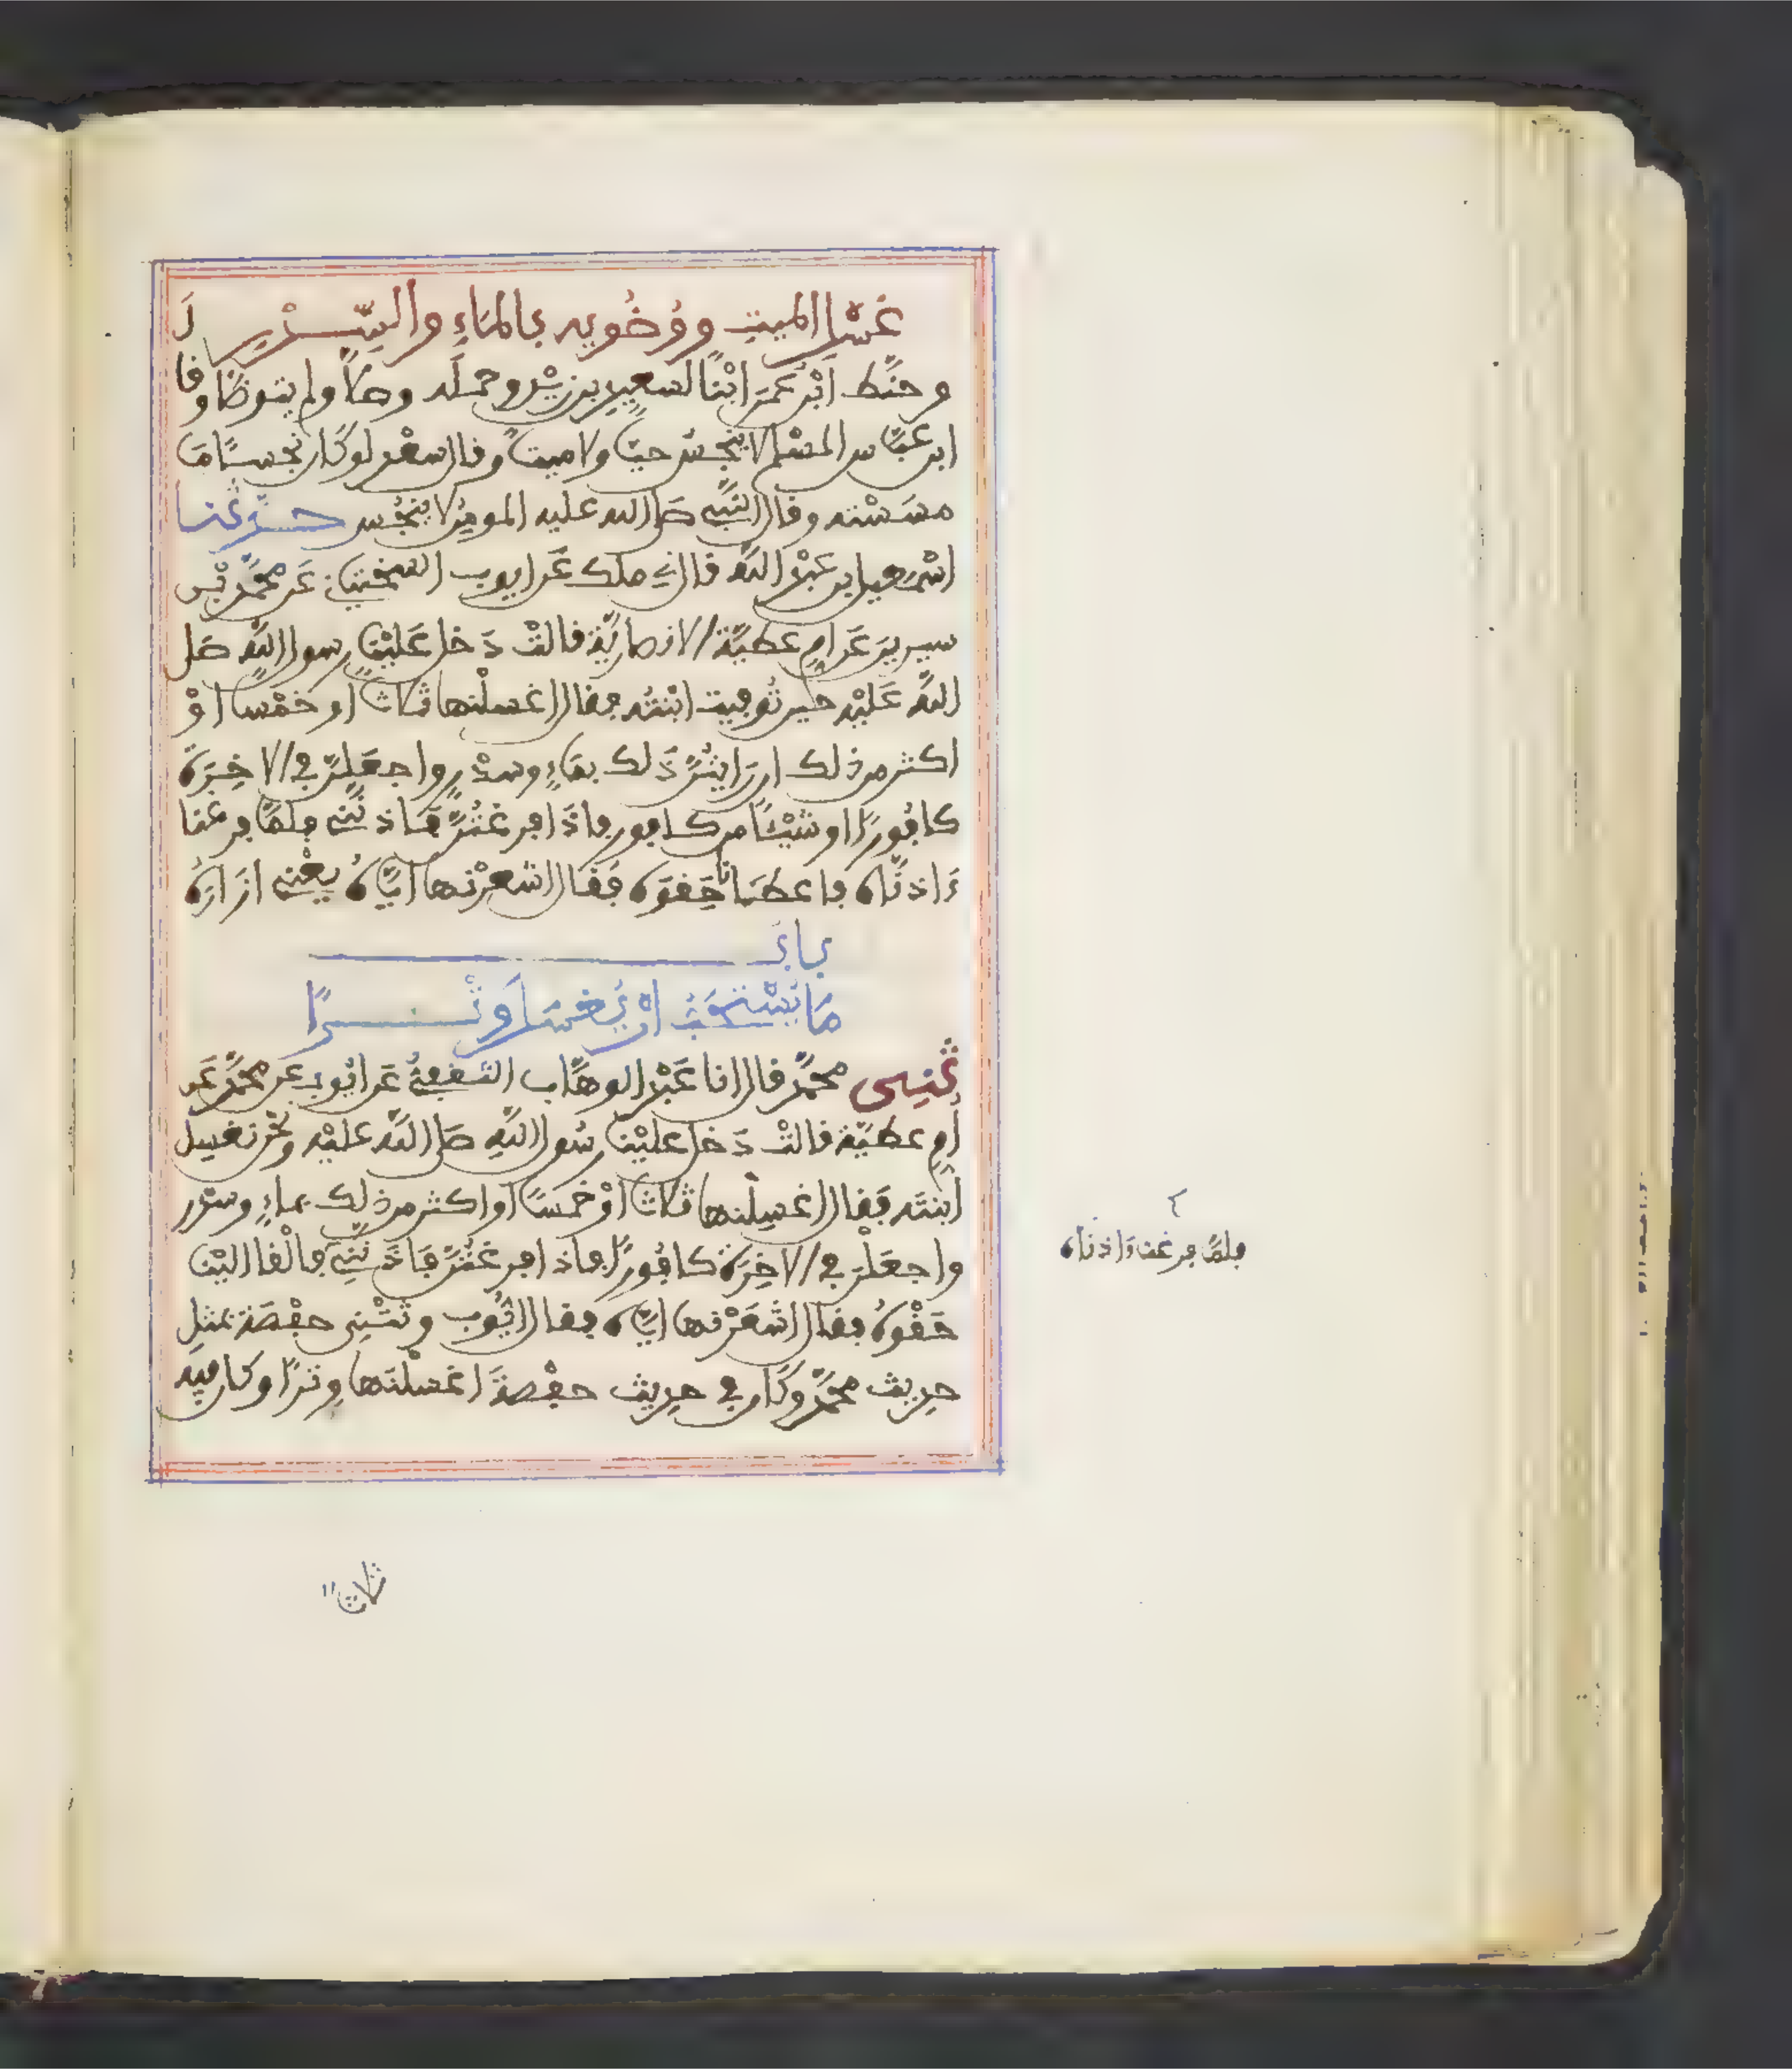 غسل الميت ووضويه بالماء والسدر
وحنط ابن عمر ابنا لسعيد بن زيد وحمله وصلا ولم يتوضا وقال
ابن عباس المسلم لا ينجس حيا ولا ميتا وقال سعد لو كان نجسا ما
مسسته وقال النبي صلى الله عليه المومن لا ينجس حدثنا
اسمعيل بن عبد الله قال ني ملك عن ايوب السختياني عن محمد بن
سيرين عن ام عطية الانصارية قالت دخل علينا رسول الله صلى
الله عليه حين توفيت ابنته فقال اغسلنها ثلاثا او خمسا او
اكثر من ذلك ان رايتن ذلك بماء وسدر واجعلن في الاخرة
كافورا او شيئا من كافور فاذا فرغتن فاذنني فلما فرغنا
ءاذناه فاعطانا حقوه فقال اشعرنها اياه يعني ازاره
باب
ما يستحب ان يغسل وترا
ثني محمد قال انا عبد الوهاب الثقفي عن ايوب عن محمد عن
ام عطية قالت دخل علينا رسول الله صلى الله عليه ونحن نغسل
ابنته فقال اغسلنها ثلاثا او خمسا او اكثر من ذلك بماء وسدر
واجعلن في الاخرة كافورا فاذا فرغتن فاذنني فالقا الينا
حقوه فقال اشعرنها اياه فقال ايوب وثتني حفصة بمثل
حديث محمد وكان في حديث حفصة اغسلنها وترا وكان فيه
فلما فرغنا ءاذناه
ثلاثا